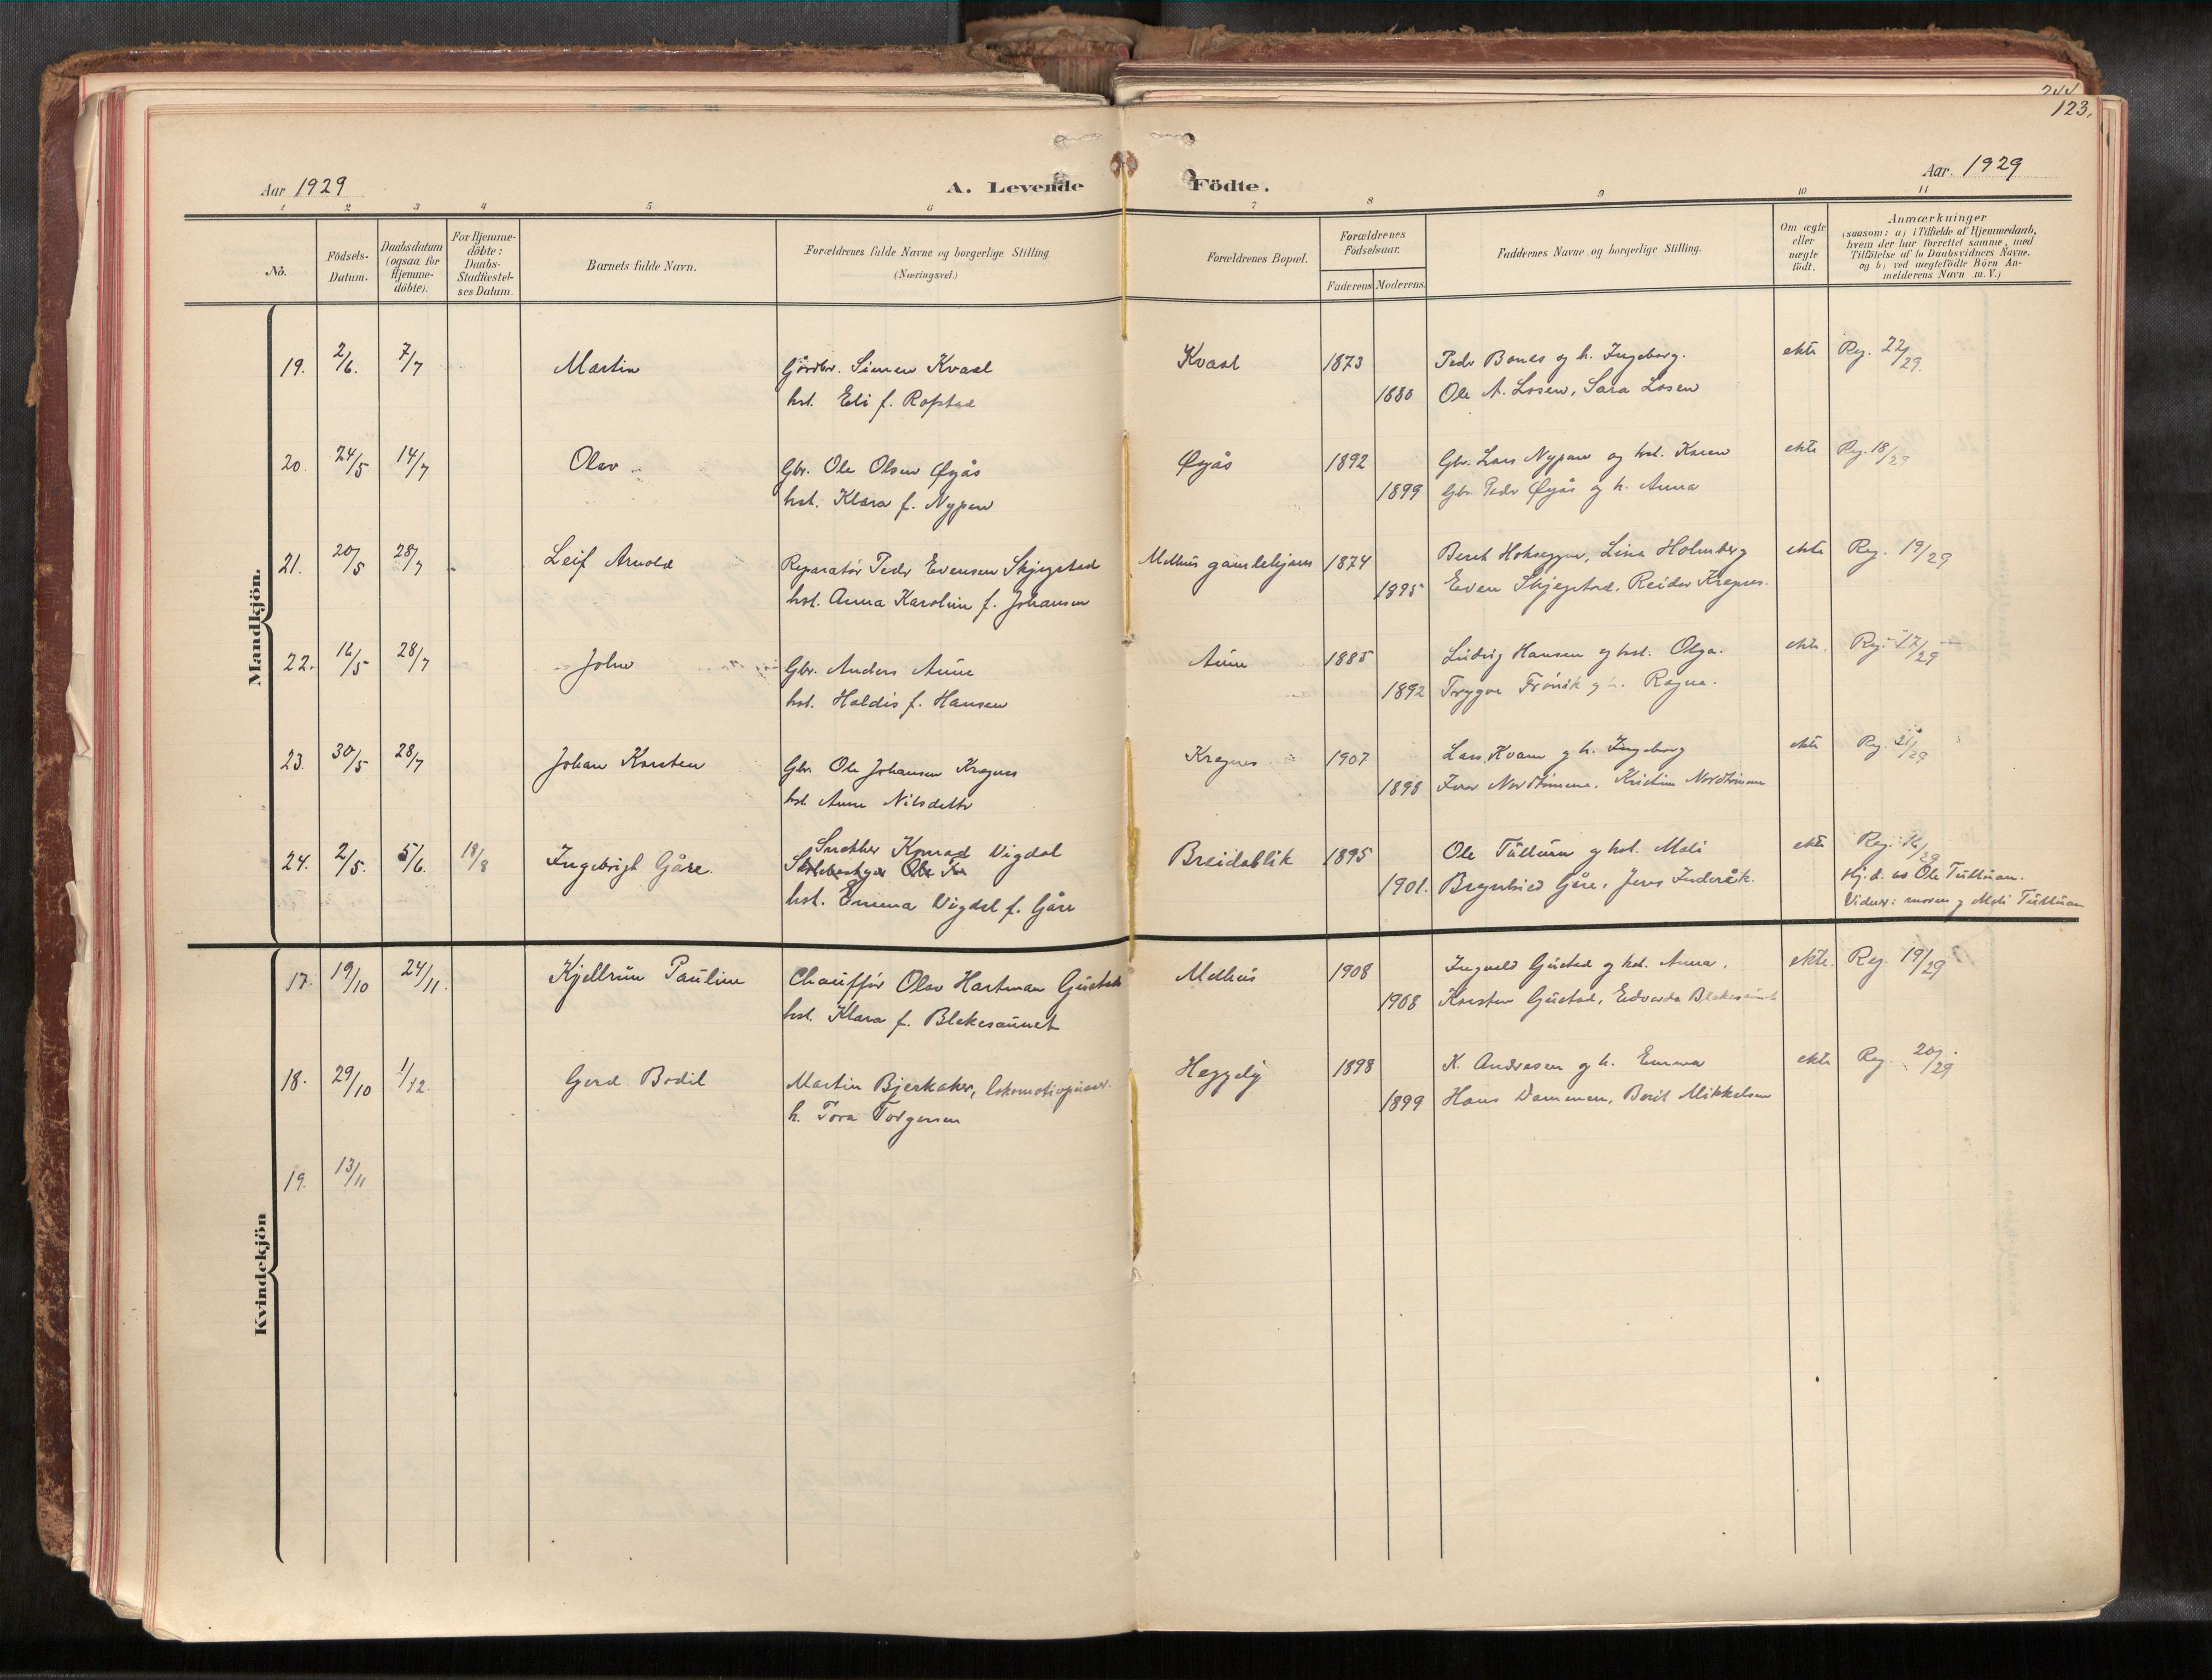 123.
Aar 1929
A. Levende Födte.
Aar. 1929
1 2 3 4 5 6 7 8 9 10 11
No.
Födsels-
Datum.
Daabsdatum
(ogsaa for
Hjemme-
döbte).
For Hjemme-
döbte:
Daabs-
Stadfæstel-
ses Datum.
Barnets fulde Navn.
Forældrenes fulde Navne og borgerlige Stilling
(Næringsvei.)
Forældrenes Bopæl.
Forældrenes
Födselsaar.
Faderens Moderens
Faddernes Navne og borgerlige Stilling.
Om ægte
eller
uægte
födt.
Anmærkninger
(saasom: a) i Tilfælde af Hjemmedaab,
hvem der har forrettet samme, med
Tilföielse af to Daabsvidners Navne,
og b) ved uægtefödte Börn An-
melderens Navn m. V.)
Mandkjön.
19. 2/6. 7/7 Martin Gårdbr. Simen Kvaal Kvaal 1873 Peder Bones og h. Ingeborg. ekte Reg. 22/29.
hst. Eli f. Rofstad 1880 Ole A. Losen, Sara Losen
20. 24/5 14/7 Olav Gbr. Ole Olsen Øyås Øyås 1892 Gbr. Lars Nypan og hst. Karen ekte Reg. 18/29
hst. Klara f. Nypan 1899 Gbr. Peder Øyås og h. Anna
21. 20/5 28/7 Leif Arnold Reparatør Peder Evensen Skjegstad Melhus gamlehjem 1874 Berit Hokseggen, Lina Holmberg ekte Reg. 19/29
hst. Anna Karoline f. Johansen 1895 Even Skjegstad, Reidar Kregnes.
22. 16/5 28/7 John Gbr. Anders Aune Aune 1885 Ludvig Hansen og hst. Olga. ekte. Reg. 17/29
hst. Haldis f. Hansen 1892 Trygve Frönsk og h. Ragna.
23. 30/5 28/7 Johan Karsten Gbr. Ole Johansen Kregnes Kregnes 1907 Lars Kvam og h. Ingeborg ekte Reg. 21/29
hst. Anne Nilsdatter 1898 Iver Nordtømme, Kristine Nordtømme
24. 2/5. 5/6. 18/8 Ingebrigt Gåre. Snekker Konrad Vigdal Breidablik 1895 Ole Tulluan og hst. Mali ekte Reg. 16/29
hst. Emma Vigdal f. Gåre 1901. Brynhild Gåre, Jens Inderåk. Hj.d. av Ole Tulluan.
Vidner: moren og Mali Tulluan
Kvindekjön
17. 19/10 24/11. Kjellrun Pauline Chauffør Olav Hartman Gustad Melhus 1908 Ingvald Gustad og hst. Anna. ekte. Reg. 19/29
hst. Klara f. Blekesaunet 1908 Karsten Gustad, Edvarda Blekesaunet
18. 29/10 1/12. Gerd Bodil Martin Bjerkaker, lokomotivpusser. Heggely 1898 K. Andresen og h. Emma ekte Reg. 20/29
h. Tora Torgersen 1899 Hans Dammen, Berit Mikkelsen
19. 13/11